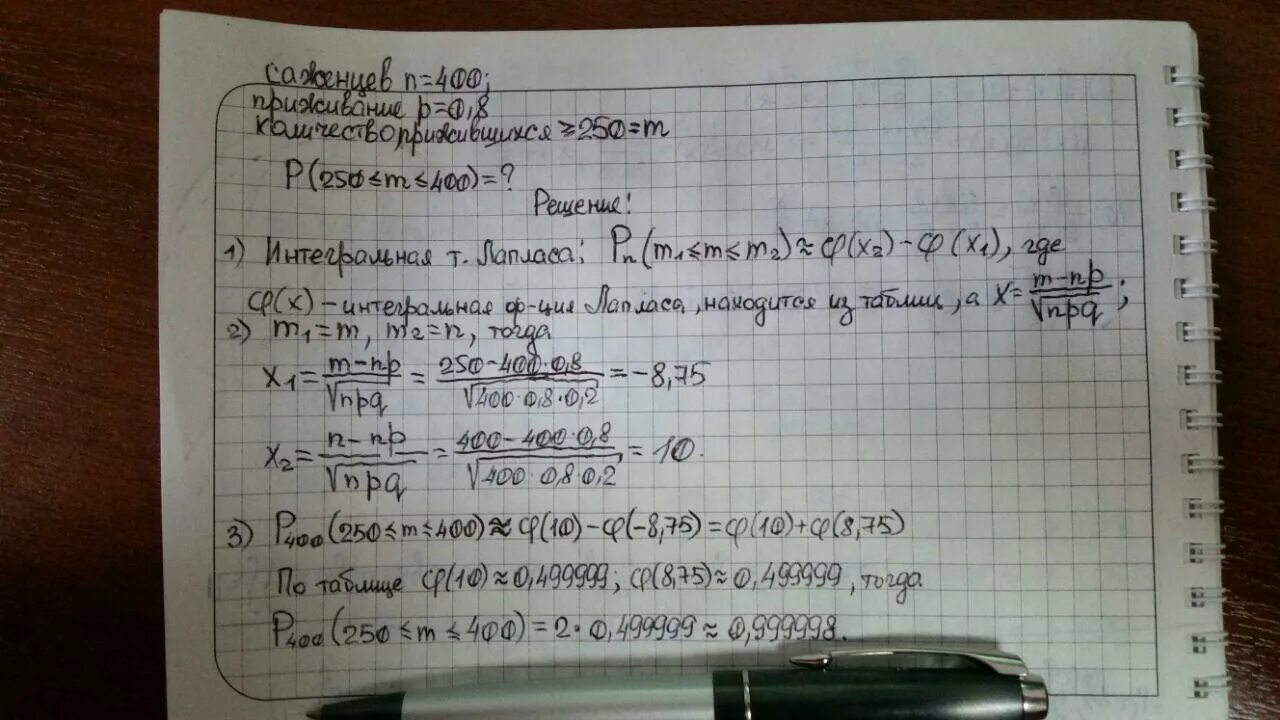 саженцев n=400;
приживание p=0,8
количество прижившихся ≥250=m
P(250≤m≤400)=?
Решение:
1) Интегральная т. Лапласа: Pn(m₁≤m≤m₂)≈φ(x₂)-φ(x₁), где
φ(x) – интегральная ф-ция Лапласа, находится из таблиц, а X=(m-np)/√npq;
2) m₁=m, m₂=n, тогда
X₁=(m-np)/√npq = (250-400·0,8)/√400·0,8·0,2 = -8,75
X₂=(n-np)/√npq = (400-400·0,8)/√400·0,8·0,2 = 10.
3) P₄₀₀(250≤m≤400)≈φ(10)-φ(-8,75)=φ(10)+φ(8,75)
По таблице φ(10)≈0,499999; φ(8,75)≈0,499999, тогда
P₄₀₀(250≤m≤400)=2·0,499999≈0,999998.